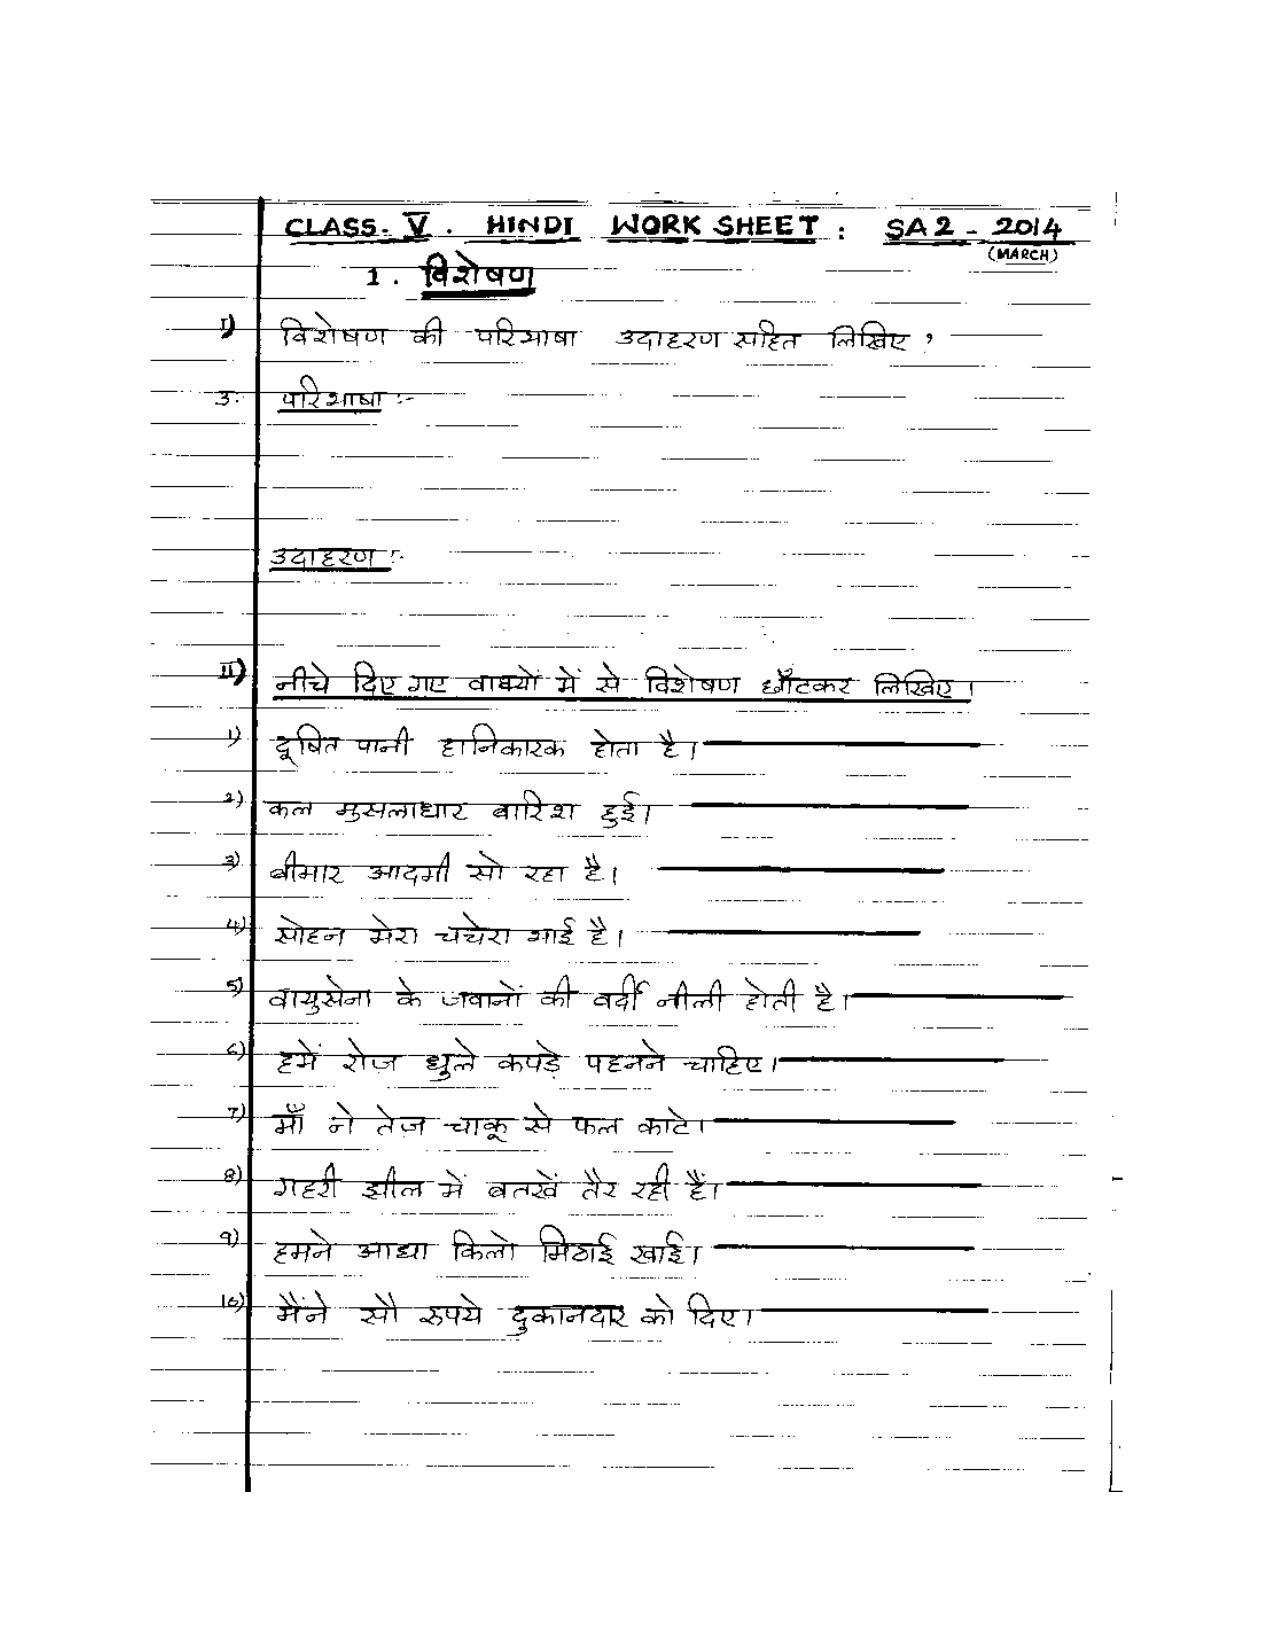 CLASS. V. HINDI WORK SHEET: SA2 - 2014
(MARCH)
1. विशेषण
I) विशेषण की परिभाषा उदाहरण सहित लिखिए ?
उ. परिभाषा :-
उदाहरण :-
II) नीचे दिए गए वाक्यों में से विशेषण छाँटकर लिखिए।
1) दूषित पानी हानिकारक होता है।
2) कल मुसलाधार बारिश हुई।
3) बीमार आदमी सो रहा है।
4) सोहन मेरा चचेरा भाई है।
5) वायुसेना के जवानों की वर्दी नीली होती है।
6) हमें रोज धुले कपड़े पहनने चाहिए।
7) माँ ने तेज़ चाकू से फल काटे।
8) गहरी झील में बतखें तैर रही हैं।
9) हमने आधा किलो मिठाई खाई।
10) मैंने सौ रुपये दुकानदार को दिए।